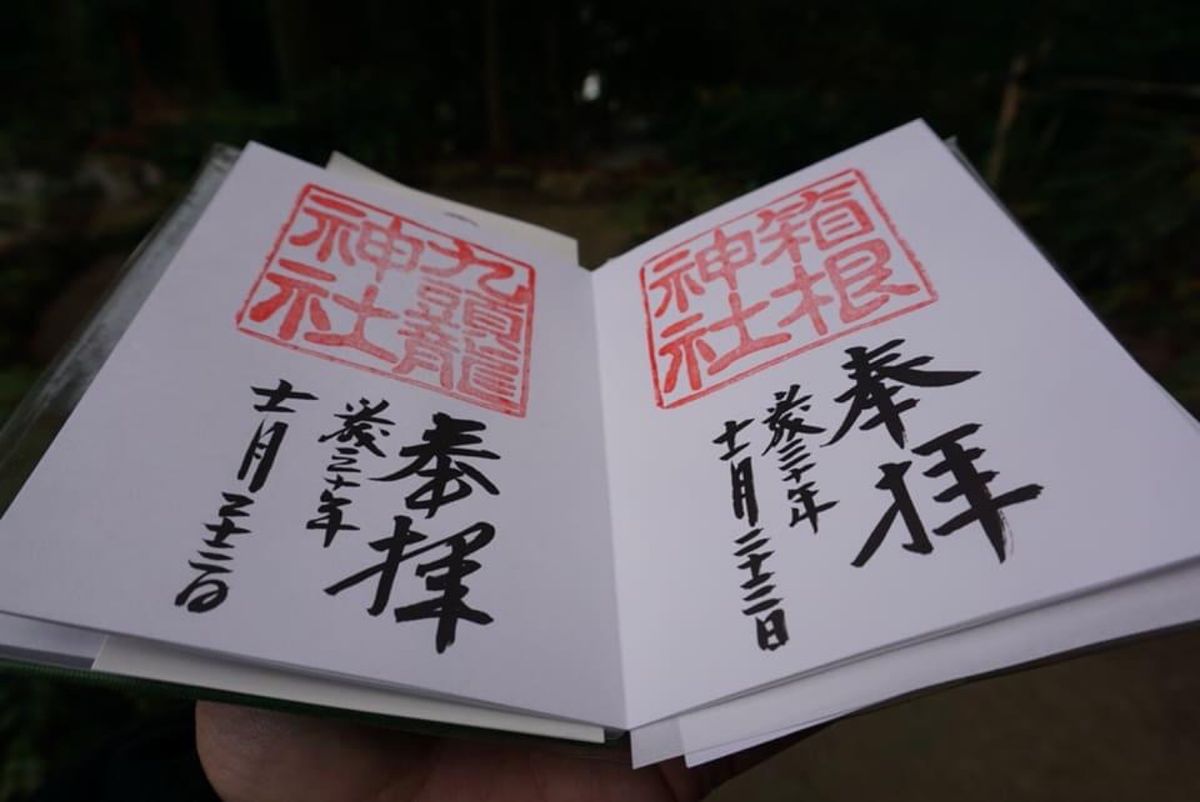 箱根
神社
奉拝
三十年
十一月二十二日
九頭龍
神社
奉拝
三十年
十一月二十二日